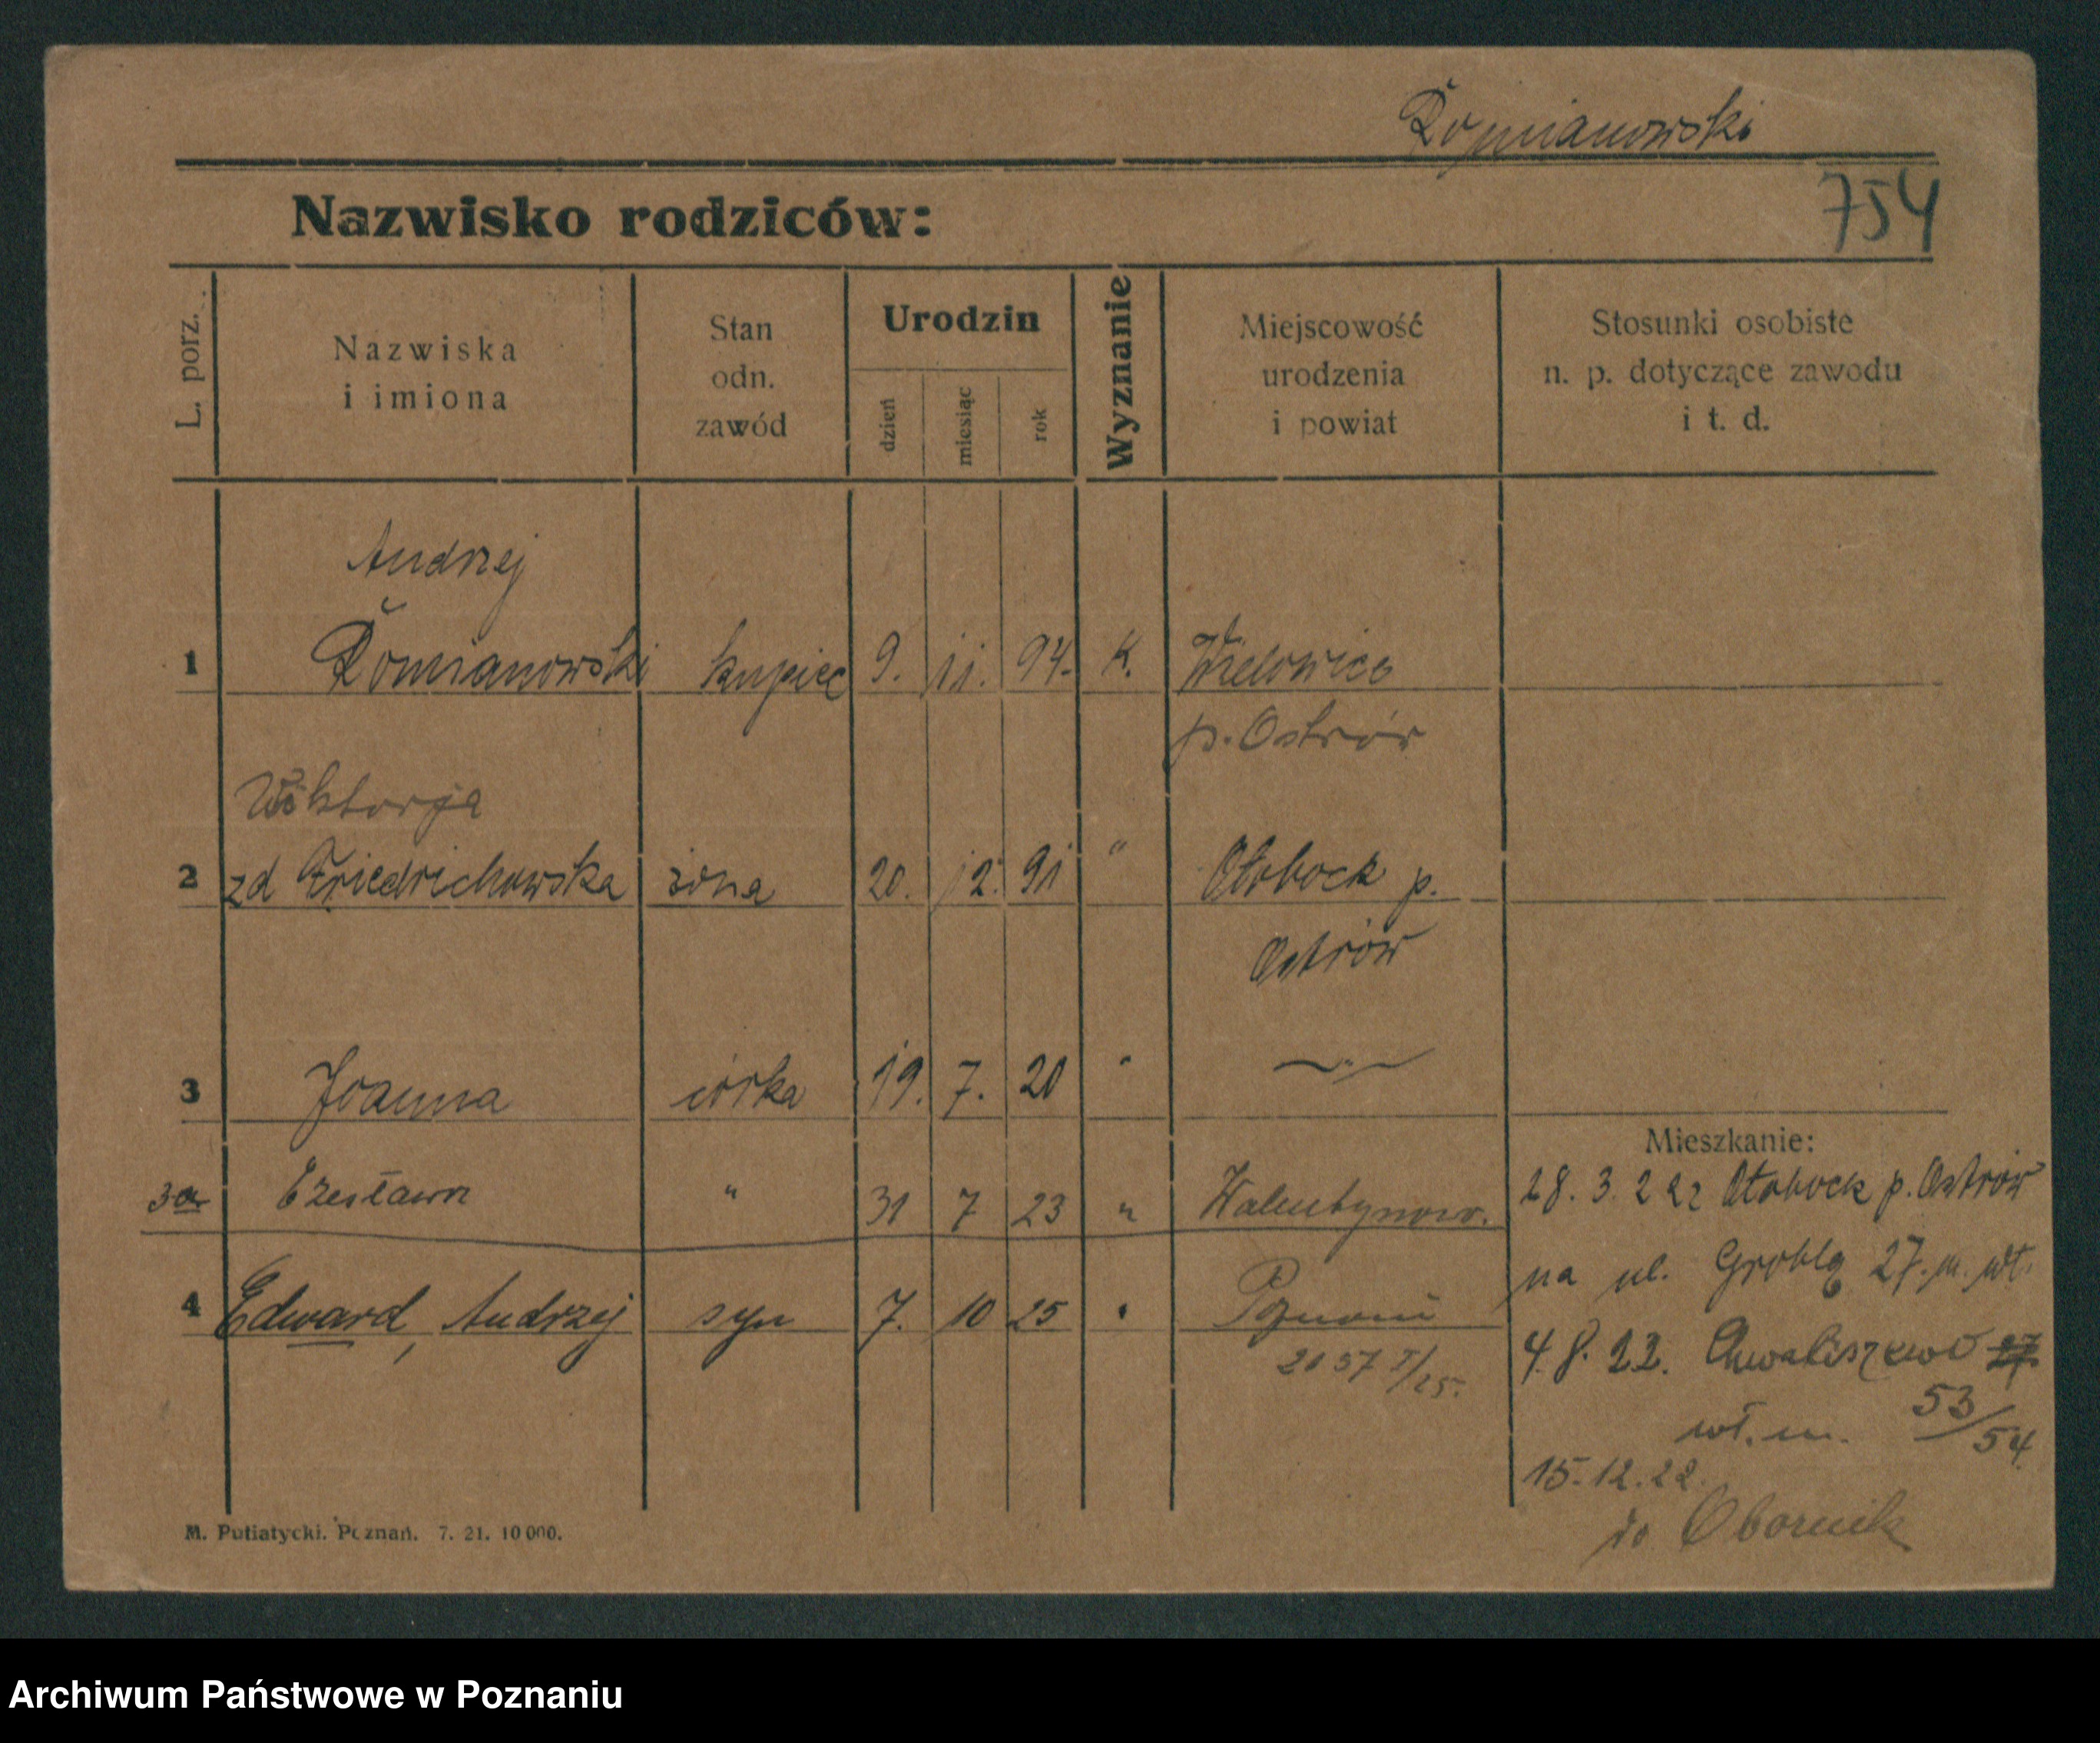 Łomianowski
754
Nazwisko rodziców:
L. porz.
Nazwiska
i imiona
Stan
odn.
zawód
Urodzin
dzień
miesiąc
rok
Wyznanie
Miejscowość
urodzenia
i powiat
Stosunki osobiste
n. p. dotyczące zawodu
i t. d.
Andrzej
1 Łomianowski kupiec 9. 11. 94. K. Wielowieś
p. Ostrów
Wiktorja
2 zd Friedrichowska żona 20. 12. 91 " Ołobock p.
Ostrów
3 Joanna córka 19. 7. 20 " — " —
Mieszkanie:
3a Czesława " 31 7 23 " Walentynowo.
28. 3. 22 z Ołobock p. Ostrów
na ul. Groblą 27. m. wł.
4 Edward, Andrzej syn 7. 10 25 " Poznań
2057 I/25.
4. 8. 22. Chwaliszewo 27
53/54
wł. m.
15. 12. 22.
do Obornik
M. Putiatycki. Poznań. 7. 21. 10 000.
Archiwum Państwowe w Poznaniu